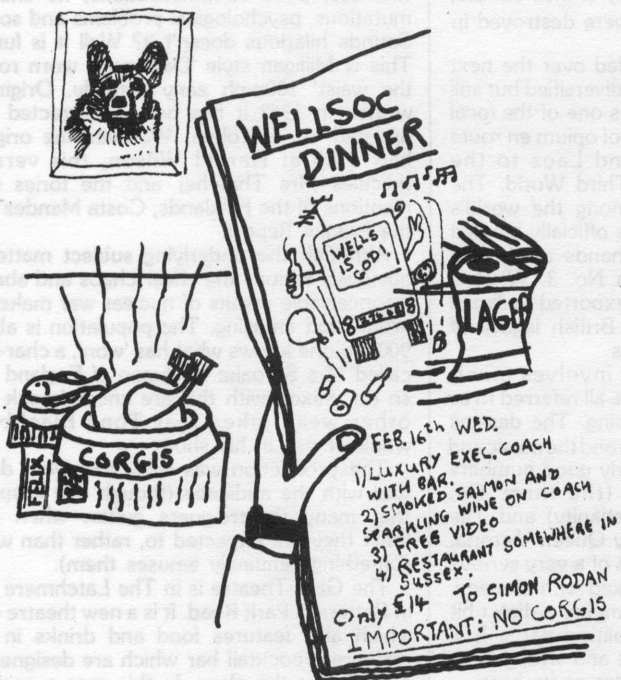 WELLSOC
DINNER
WELLS
IS
GOD!
LAGER
CORGIS
FEB. 16th WED.
1) LUXURY EXEC. COACH
WITH BAR.
2) SMOKED SALMON AND
SPARKLING WINE ON COACH
3) FREE VIDEO
4) RESTAURANT SOMEWHERE IN
SUSSEX.
Only £14 TO SIMON RODAN
IMPORTANT: NO CORGIS